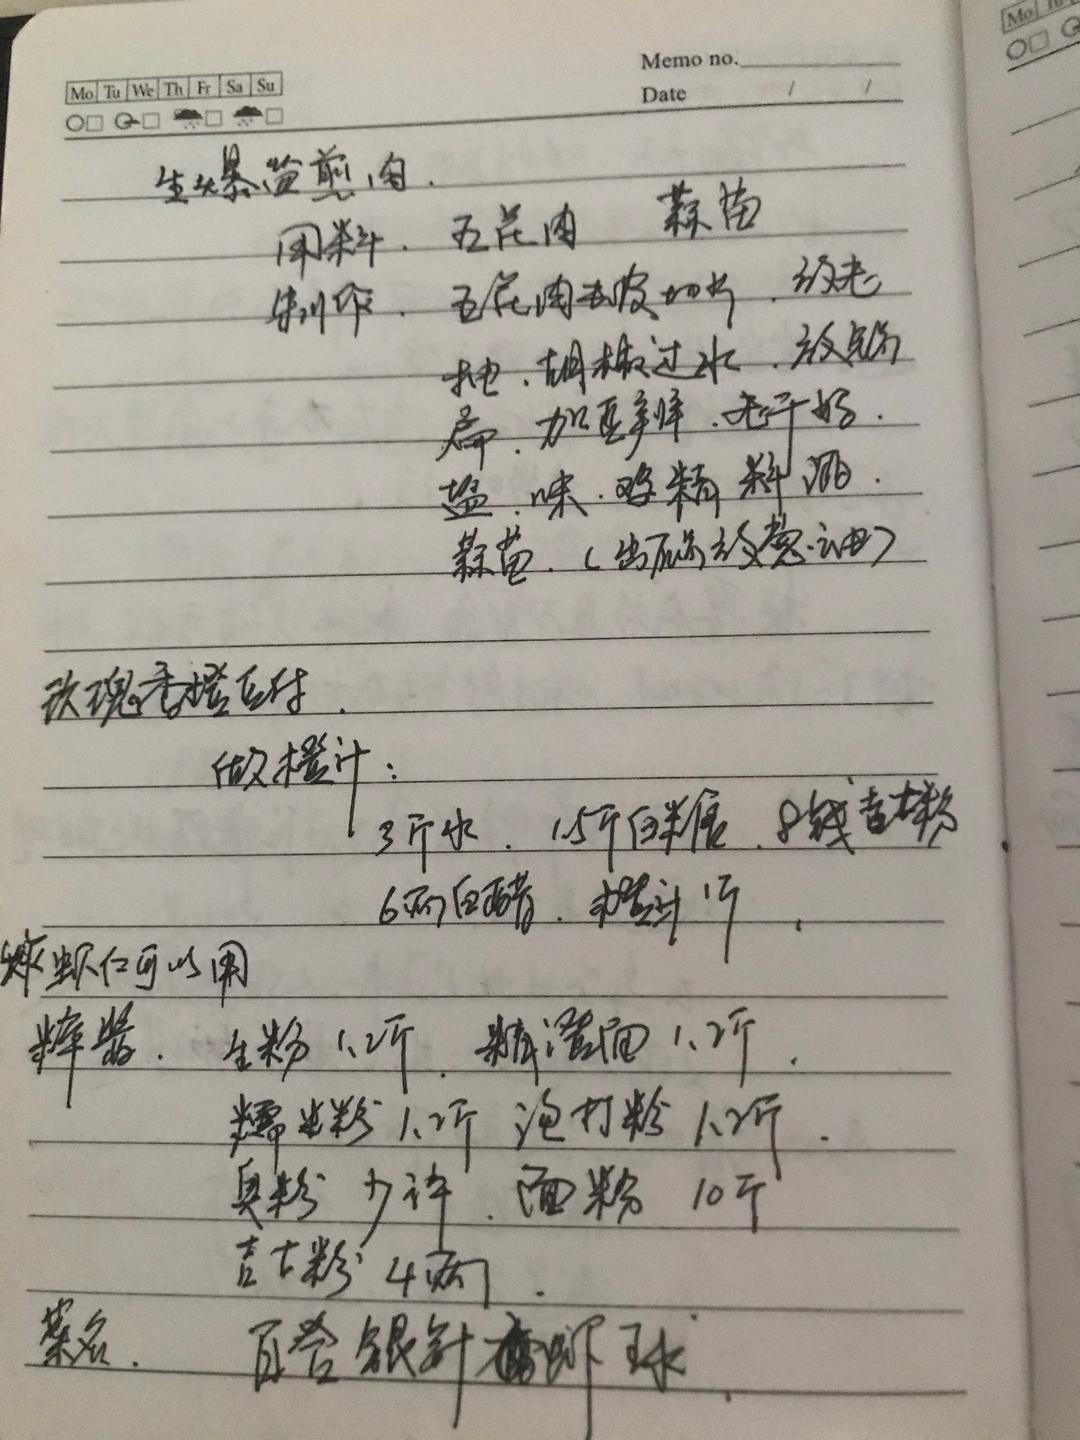 Mo Tu We Th Fr Sa Su
Memo no.
Date / /
生爆盐煎肉.
用料. 五花肉 蒜苗
制作. 五花肉去皮切片. 放老
抽. 胡椒过水. 放锅
扁. 加豆. 老干妈.
盐. 味. 鸡精 料酒.
蒜苗. (出锅放葱油)
玫瑰香橙豆付.
做橙汁:
3斤水. 1.5斤白糖. 8钱吉士粉
6两白醋. 橙汁1斤.
炸虾仁可以用
浆. 生粉1.2斤. 面1.2斤.
糯米粉1.2斤 泡打粉1.2斤.
臭粉 少许. 面粉 10斤
吉士粉 4两.
菜名. 百合银针 虾球.
Mo Tu